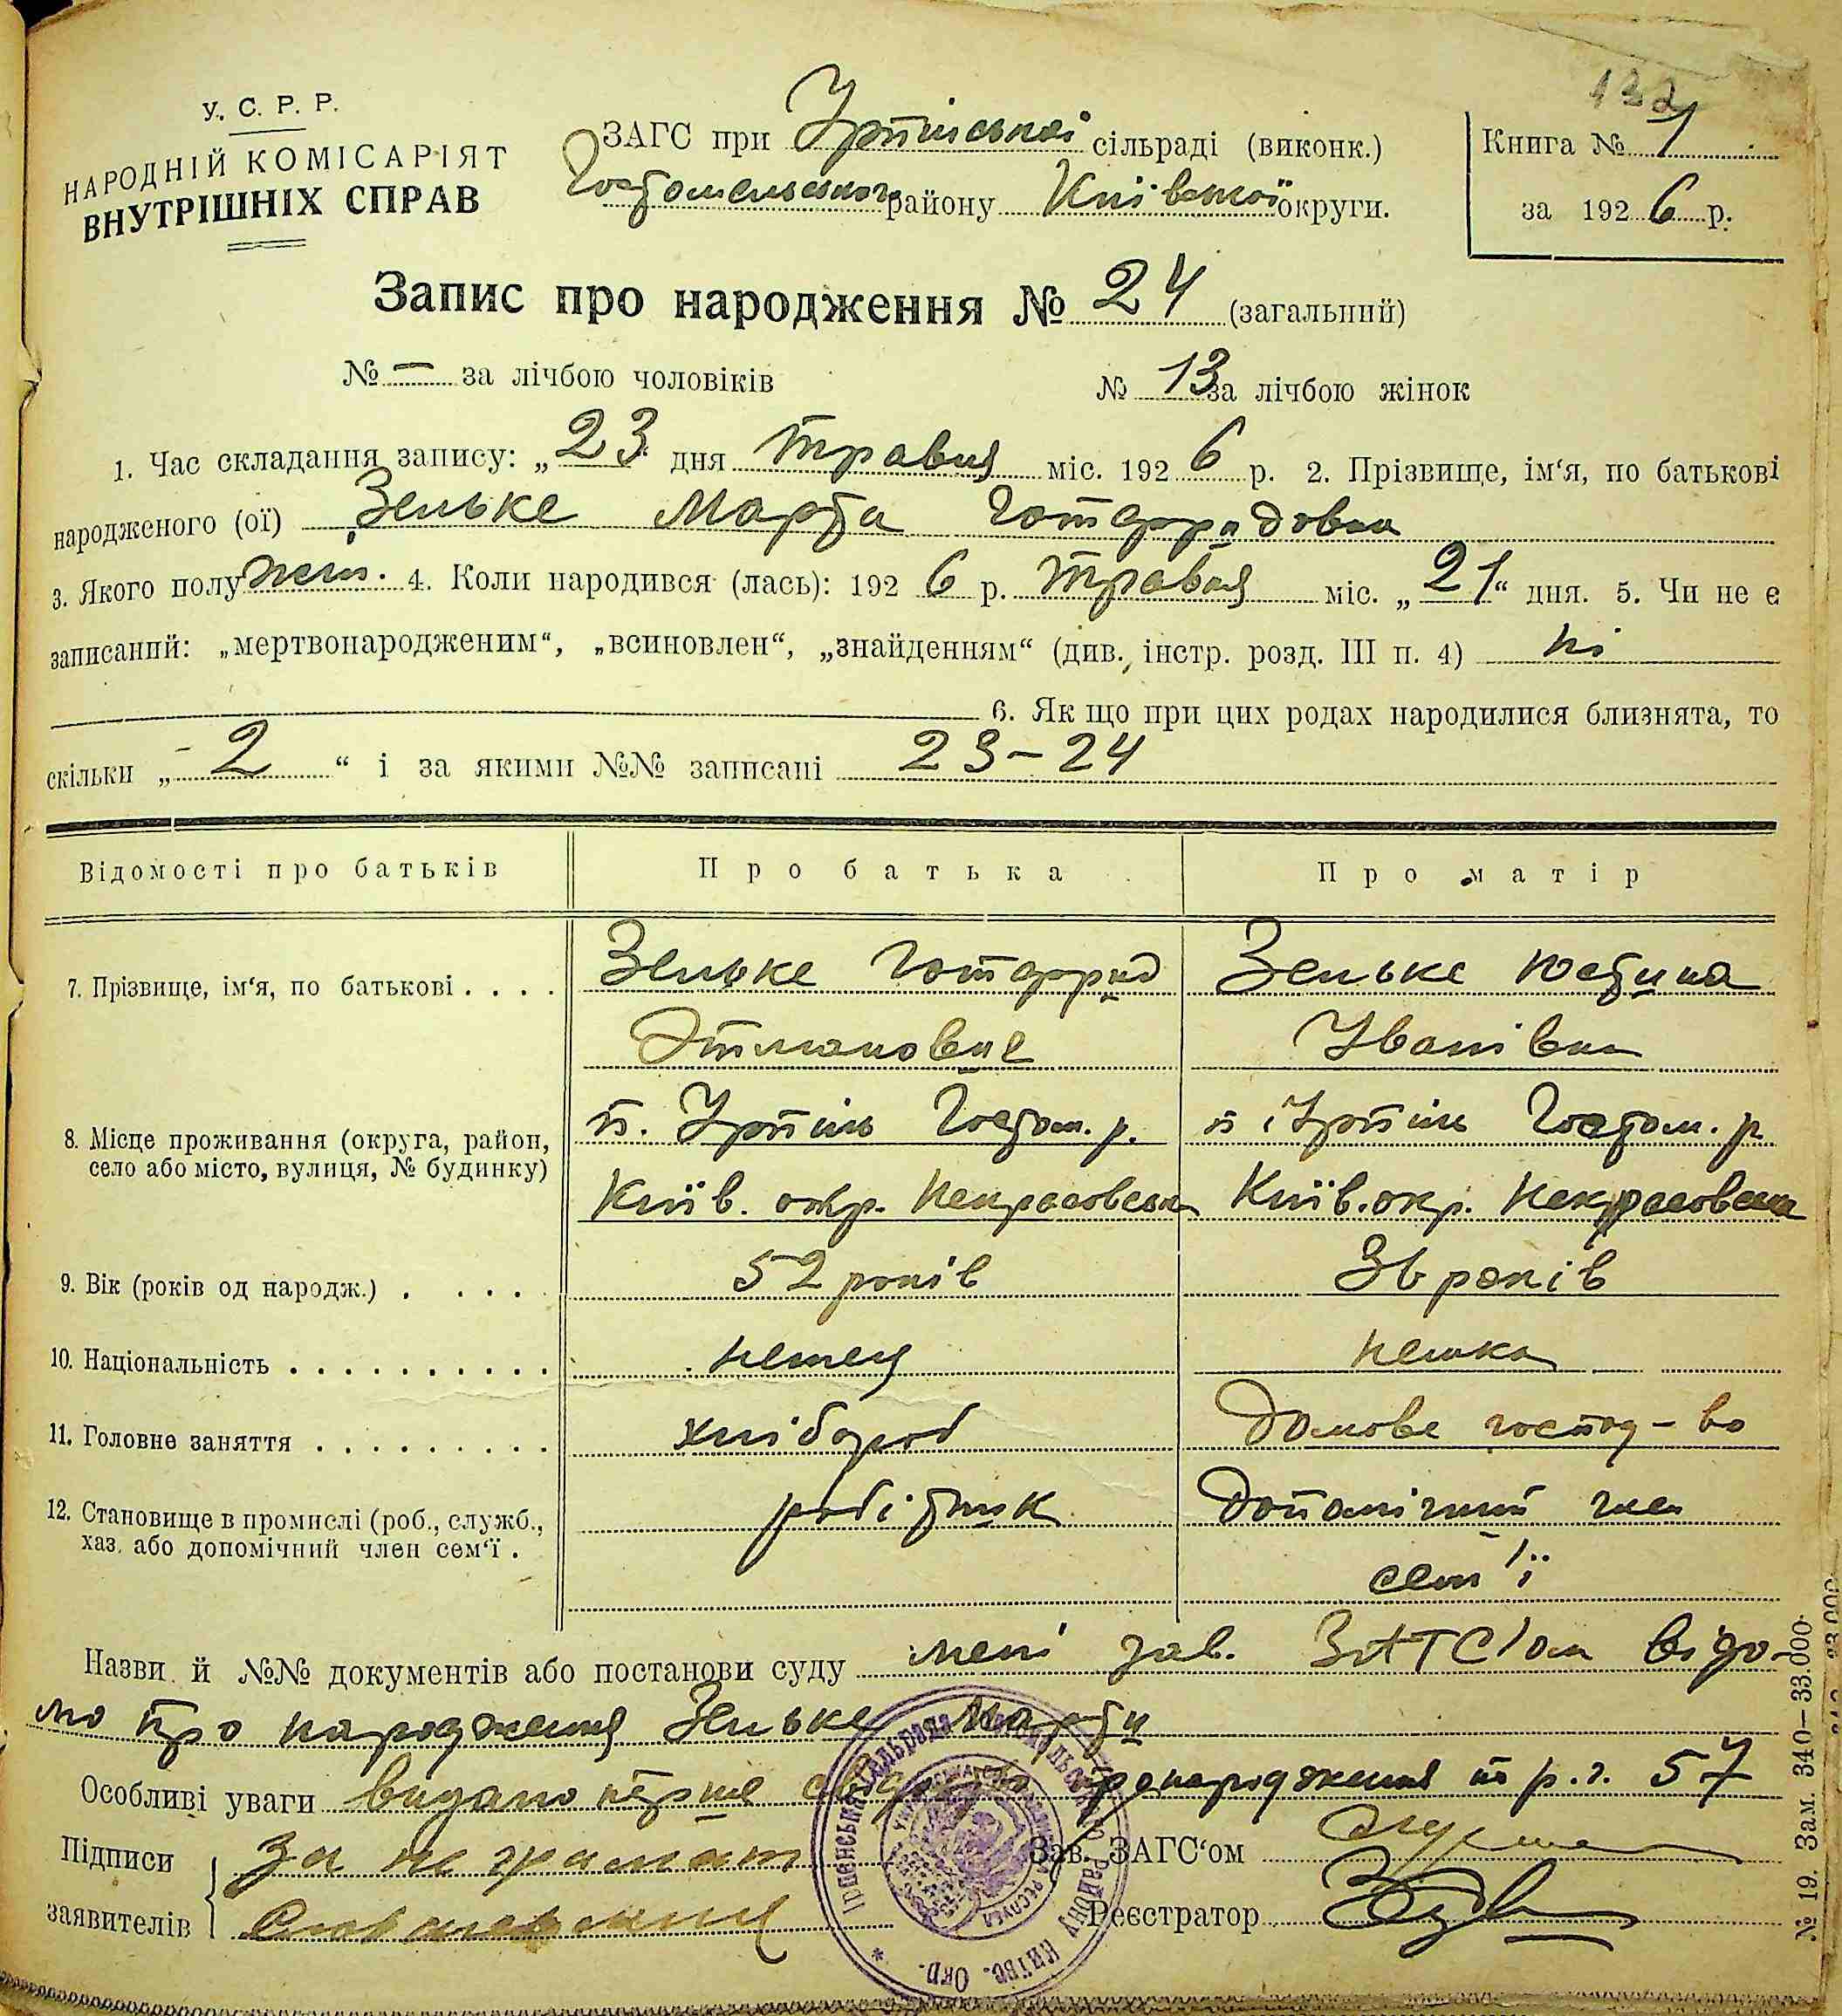 132
У. С. Р. Р.
НАРОДНІЙ КОМІСАРІЯТ
ВНУТРІШНІХ СПРАВ
ЗАГС при Ірпінській сільраді (виконк.)
Гостомельського району Київської округи.
Книга № 1
за 1926 р.
Запис про народження № 24 (загальний)
№ — за лічбою чоловіків № 13 за лічбою жінок
1. Час складання запису: „23 дня травня міс. 1926 р. 2. Прізвище, ім‘я, по батькові
народженого (ої) Зельке Марта Готфридовна
3. Якого полу жін. 4. Коли народився (лась): 1926 р. травня міс. „21“ дня. 5. Чи не є
записаний: „мертвонародженим“, „всиновлен“, „знайденням“ (див. інстр. розд. III п. 4) ні
6. Як що при цих родах народилися близнята, то
скільки „2“ і за якими №№ записані 23-24
Відомості про батьків Про батька Про матір
7. Прізвище, ім‘я, по батькові . . . . Зельке Готфрид Зельке Юстина
Іванівна
8. Місце проживання (округа, район, п. Ірпінь Гостом. р. п. Ірпінь Гостом. р.
село або місто, вулиця, № будинку)
Київ. окр. Некрасовська Київ. окр. Некрасовська
9. Вік (років од народж.) . . . . 52 років 36 років
10. Національність . . . . . . . . . . . немец немка
11. Головне заняття . . . . . . . . . хлібороб домове господ-во
12. Становище в промислі (роб., служб., робітник допомічний член
хаз. або допомічний член сем‘ї . сем'ї
Назви й №№ документів або постанови суду мені зав. ЗАГС'ом відо-
мо про народження Зельке Марти
Особливі уваги видано перше свідоцтво про народження р. 57
Підписи За неграмотн
заявителів
Зав. ЗАГС‘ом
Реєстратор
Ірпенська сільрада Гостомельського Району Київс. Окр.
№ 19. Зам. 340—33.000